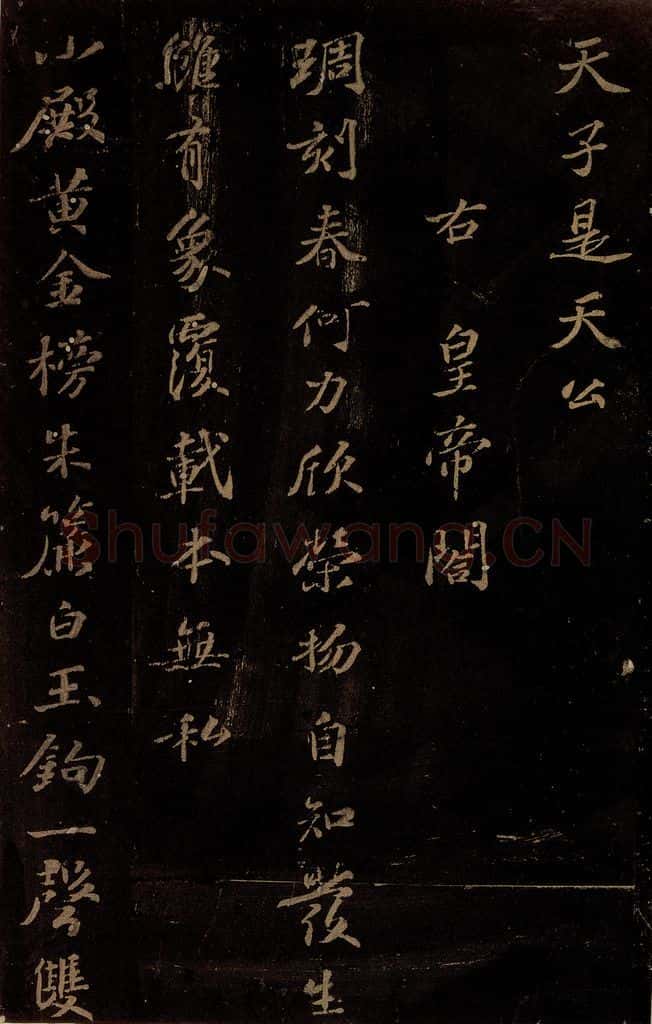 天子是天公
右皇帝閤
琱刻春何力欣榮物自知發生
雖有象覆載本無私
小殿黃金榜朱簾白玉鉤一聲雙
Shufawang.CN